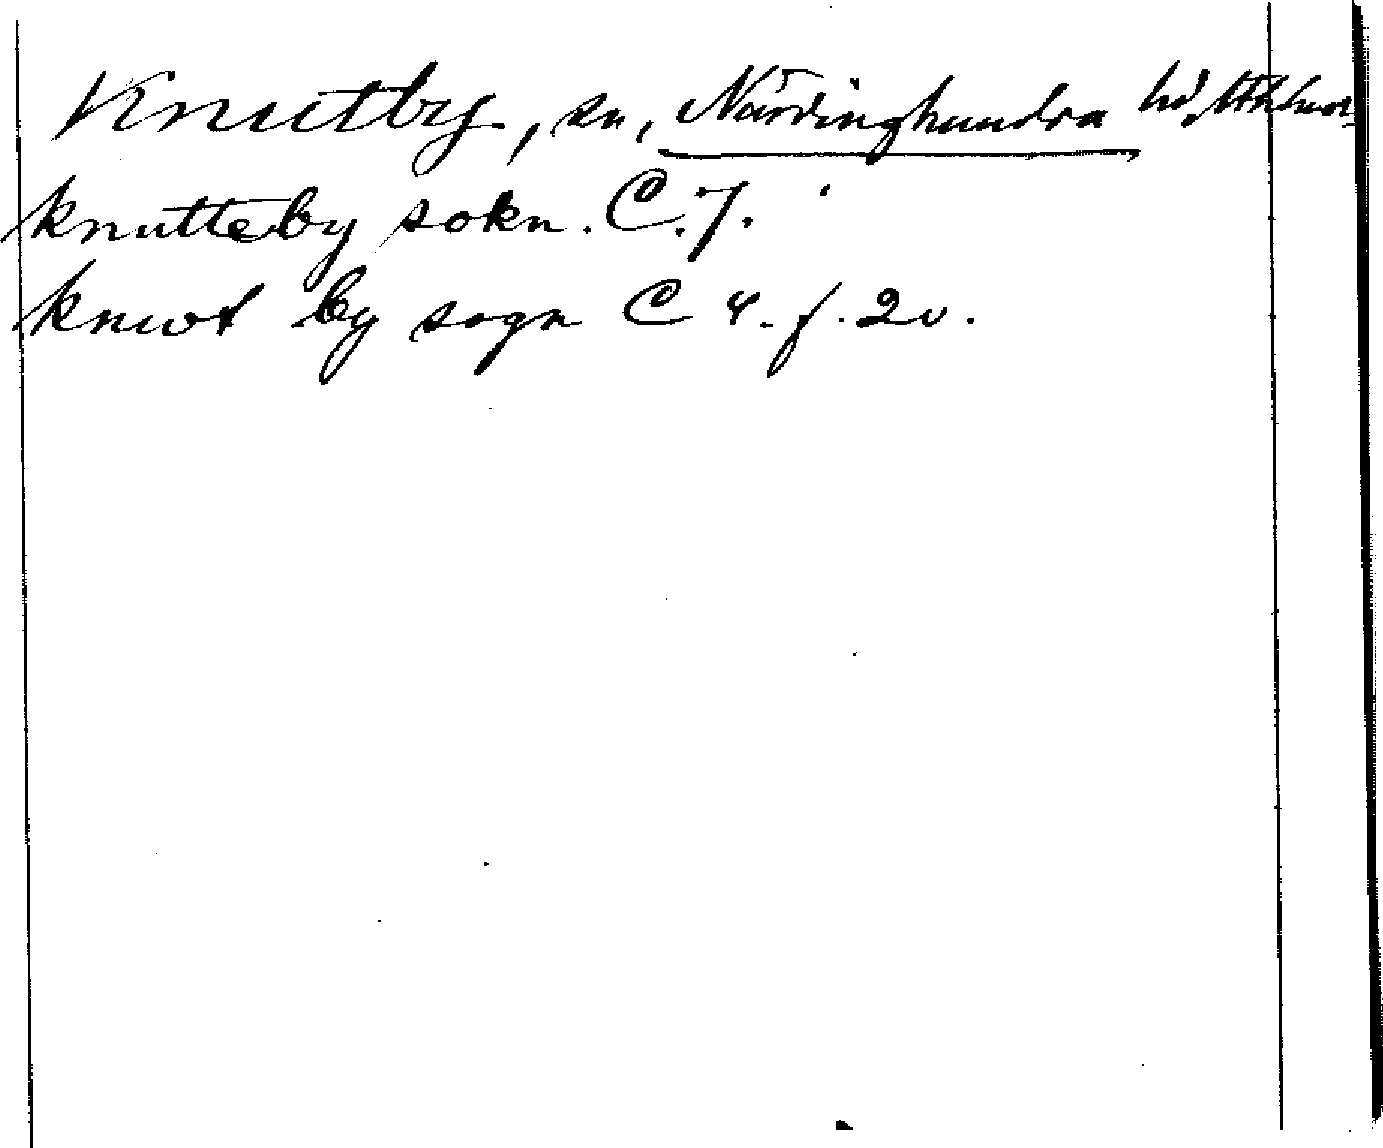 Knutby, sn, Närdinghundra hd, Sthlms
knutteby sokn. C. 7.
knwt by sogn C 4. f. 2v.